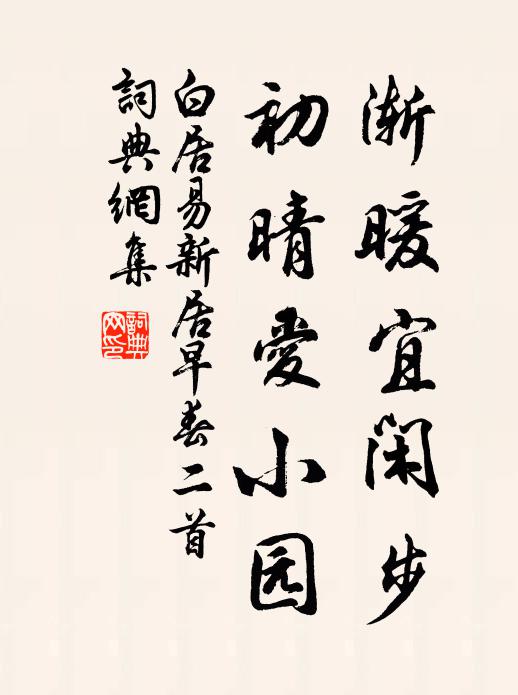 漸暖宜閑步
初晴愛小园
白居易新居早春二首
詞典網集
詞典网印